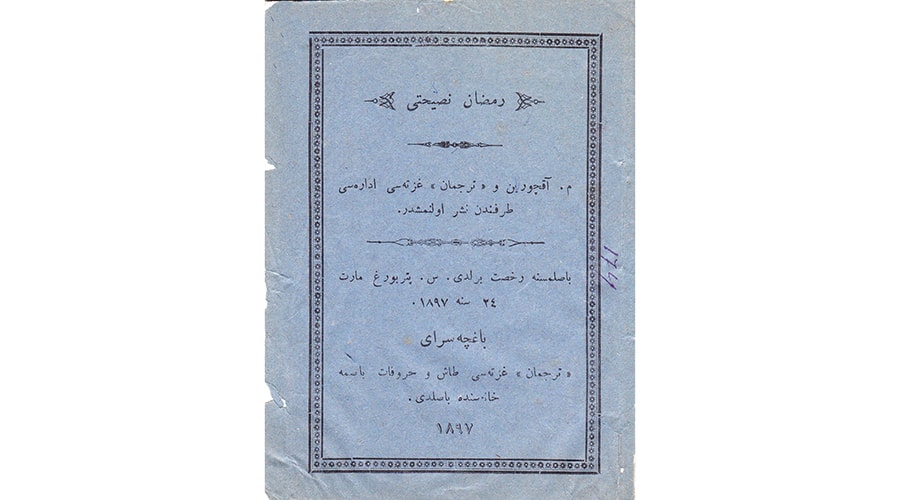 رمضان نصیحتی
م. آقچورین و «ترجمان» غزته‌سی اداره‌سی
طرفندن نشر اولنمشدر.
باصلمسنه رخصت برلدی. س. پتربورغ مارت
٢٤ سنه ١٨٩٧.
باغچه سرای
«ترجمان» غزته‌سی طاش و حروفات باسمه
خانه‌سنده باصلدی.
١٨٩٧